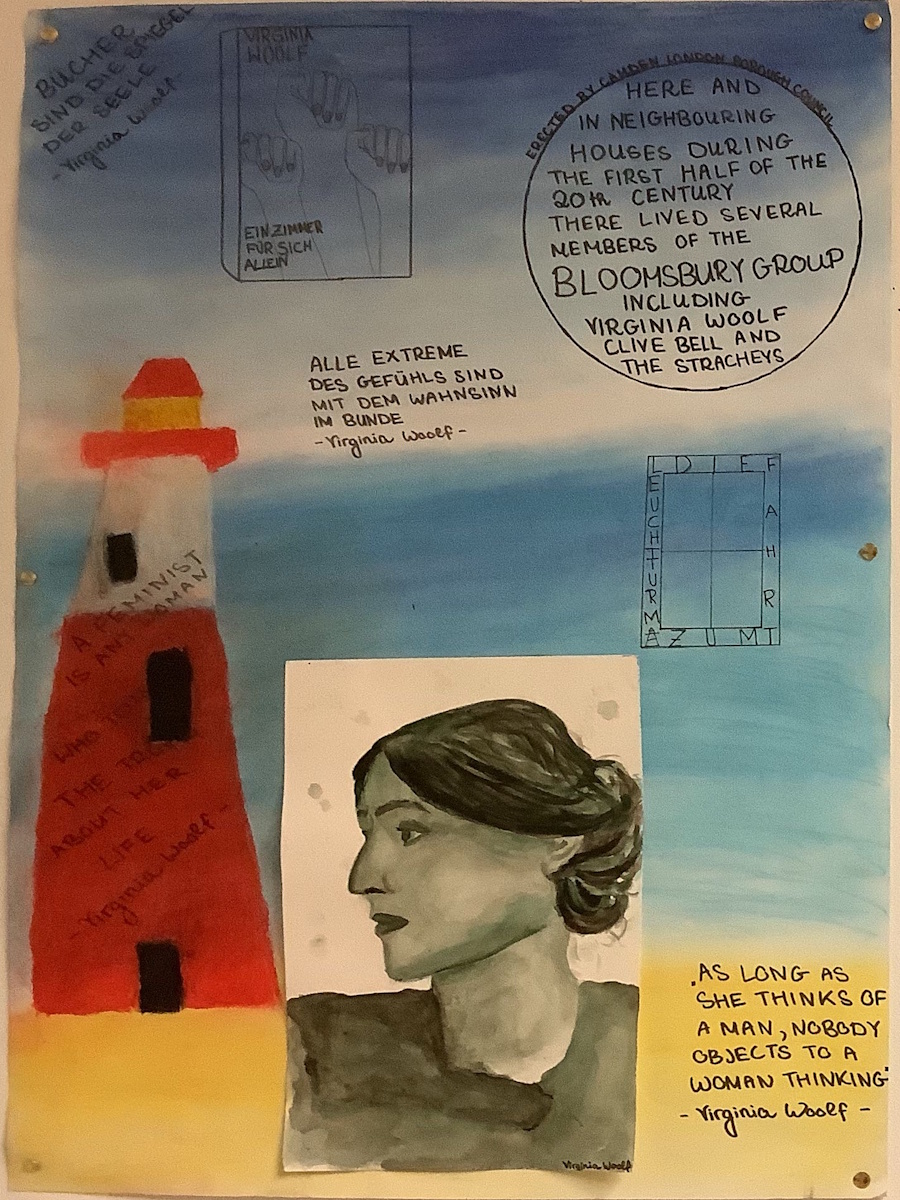 BÜCHER
SIND DIE SPIEGEL
DER SEELE
- Virginia Woolf
VIRGINIA
WOOLF
EIN ZIMMER
FÜR SICH
ALLEIN
ERECTED BY CAMDEN LONDON BOROUGH COUNCIL
HERE AND
IN NEIGHBOURING
HOUSES DURING
THE FIRST HALF OF THE
20th CENTURY
THERE LIVED SEVERAL
NEMBERS OF THE
BLOOMSBURY GROUP
INCLUDING
VIRGINIA WOOLF
CLIVE BELL AND
THE STRACHEYS
ALLE EXTREME
DES GEFÜHLS SIND
MIT DEM WAHNSINN
IM BUNDE
- Virginia Woolf -
DIE
FAHRT
ZUM
LEUCHTTURM
A FEMINIST
IS ANY WOMAN
WHO
THE
ABOUT HER
LIFE
- Virginia Woolf -
„AS LONG AS
SHE THINKS OF
A MAN, NOBODY
OBJECTS TO A
WOMAN THINKING"
- Virginia Woolf -
Virginia Woolf